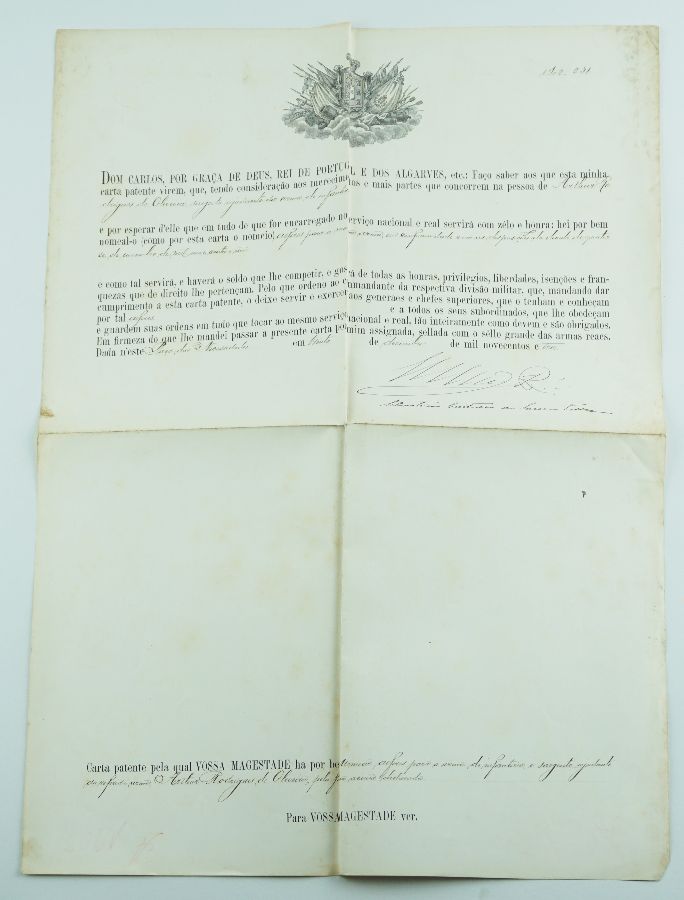 DOM CARLOS, POR GRAÇA DE DEUS, REI DE PORTUGAL E DOS ALGARVES, etc.: Faço saber aos que esta minha
carta patente virem, que, tendo consideração aos merecimentos e mais partes que concorrem na pessoa de Arthur Ro
drigues de Oliveira, sargento ajudante
e por esperar d'elle que em tudo de que for encarregado no serviço nacional e real servirá com zêlo e honra: hei por bem
nomeal-o (como por esta carta o nomeio) alferes para a
e como tal servirá, e haverá o soldo que lhe competir, e gosará de todas as honras, privilegios, liberdades, isenções e fran-
quezas que de direito lhe pertençam. Pelo que ordeno ao commandante da respectiva divisão militar, que, mandando dar
cumprimento a esta carta patente, o deixe servir e exercer aos generaes e chefes superiores, que o tenham e conheçam
por tal alferes e a todos os seus subordinados, que lhe obedeçam
e guardem suas ordens em tudo que tocar ao mesmo serviço nacional e real, tão inteiramente como devem e são obrigados.
Em firmeza do que lhe mandei passar a presente carta por mim assignada, sellada com o sêllo grande das armas reaes.
Dada n'este Paço das Necessidades em de dezembro de mil novecentos e
Carta patente pela qual VOSSA MAGESTADE ha por bem nomear alferes para a arma de infanteria, o sargento ajudante
da referida arma Arthur Rodrigues de Oliveira, pela fórma acima declarada.
Para VOSSA MAGESTADE ver.